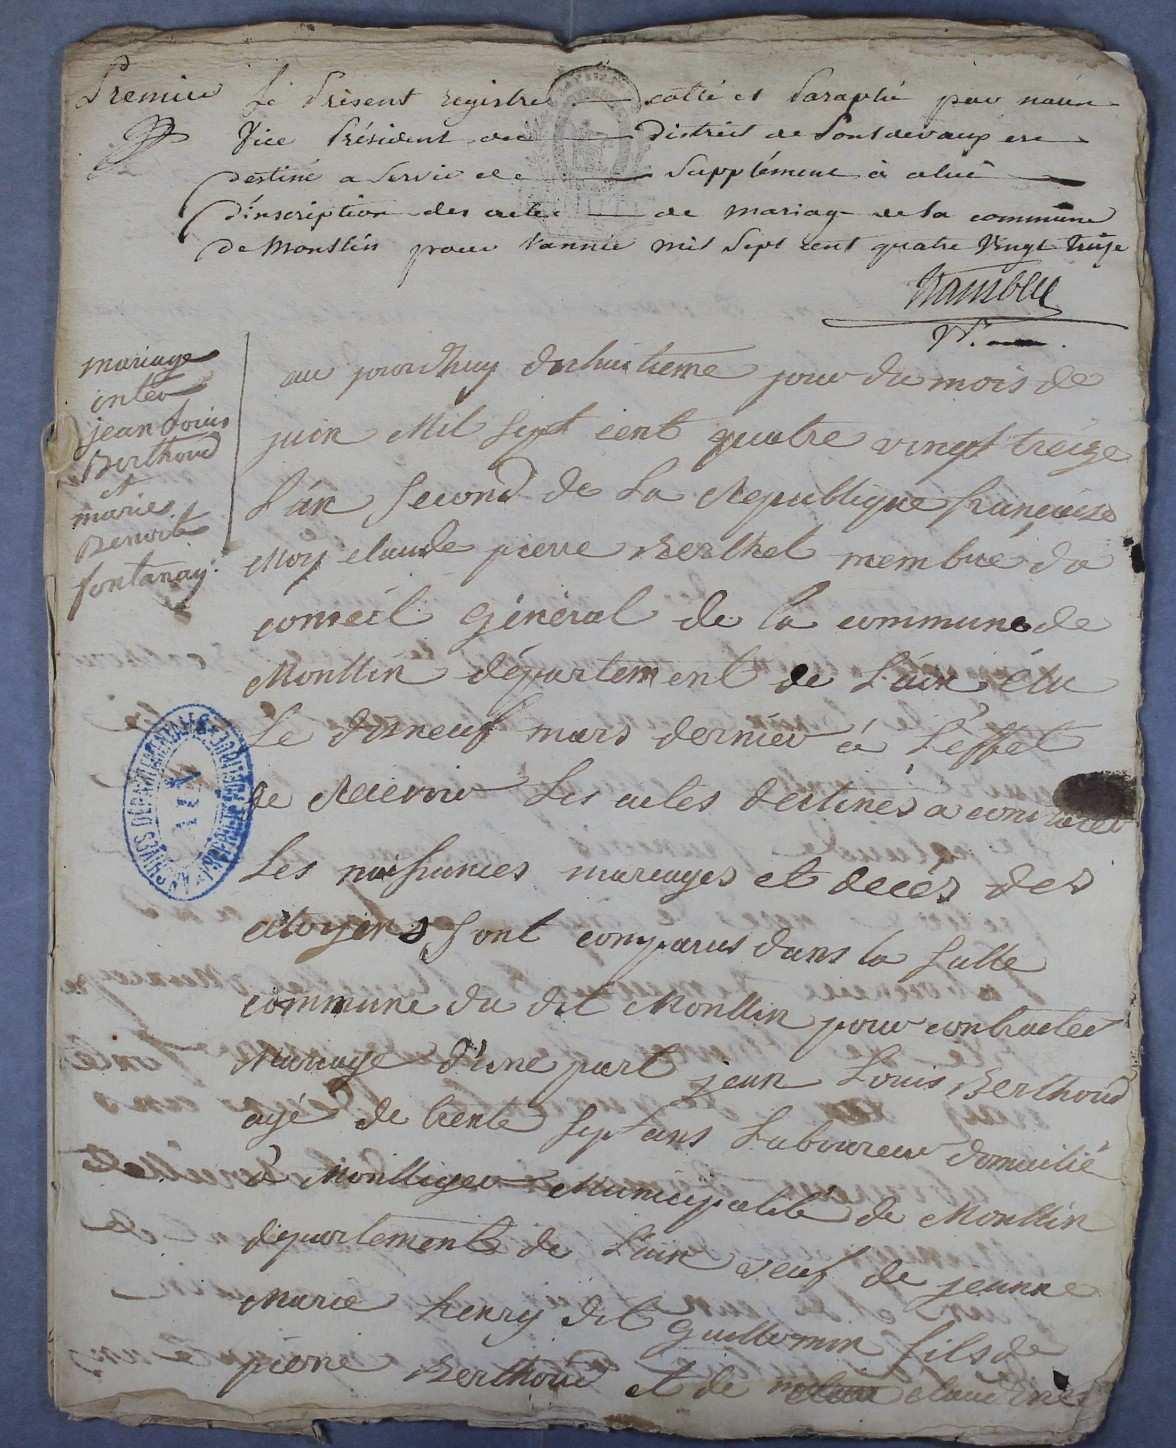 Premier
Le Présent registre cotté et Paraphé par nous
Vice Président du District de Pontdevaux est
destiné a servir de Supplément à celui
d'inscription des actes de mariage de la commune
de Monstin pour l'année mil sept cent quatre Vingt treize
V.P.
mariage
entre
jean Louis
Berthoud
et
marie
Benoite
fontanay
au jourdhuy dixhuitieme jour du mois de
juin Mil sept cent quatre vingt treize
L'an second de La Republique françaize
Moy claude pierre Berthet membre du
conseil général de la commune de
Monttin département de L'ain élu
Le dixneuf mars dernier à L'effet
de Recevoir Les actes destinés a constater
Les naissances mariages et decès des
citoyens sont comparus dans la salle
commune du dit Monttin pour contracter
Mariage d'une part jean Louis Berthoud
agé de trente sept ans Laboureur domicilié
à Montliger Municipalité de Monttin
département de L'ain veuf de jeanne
Marie henry dit guillermin fils de
pierre Berthoud et de claudine
ARCHIVES DEPARTEMENTALES
AIN